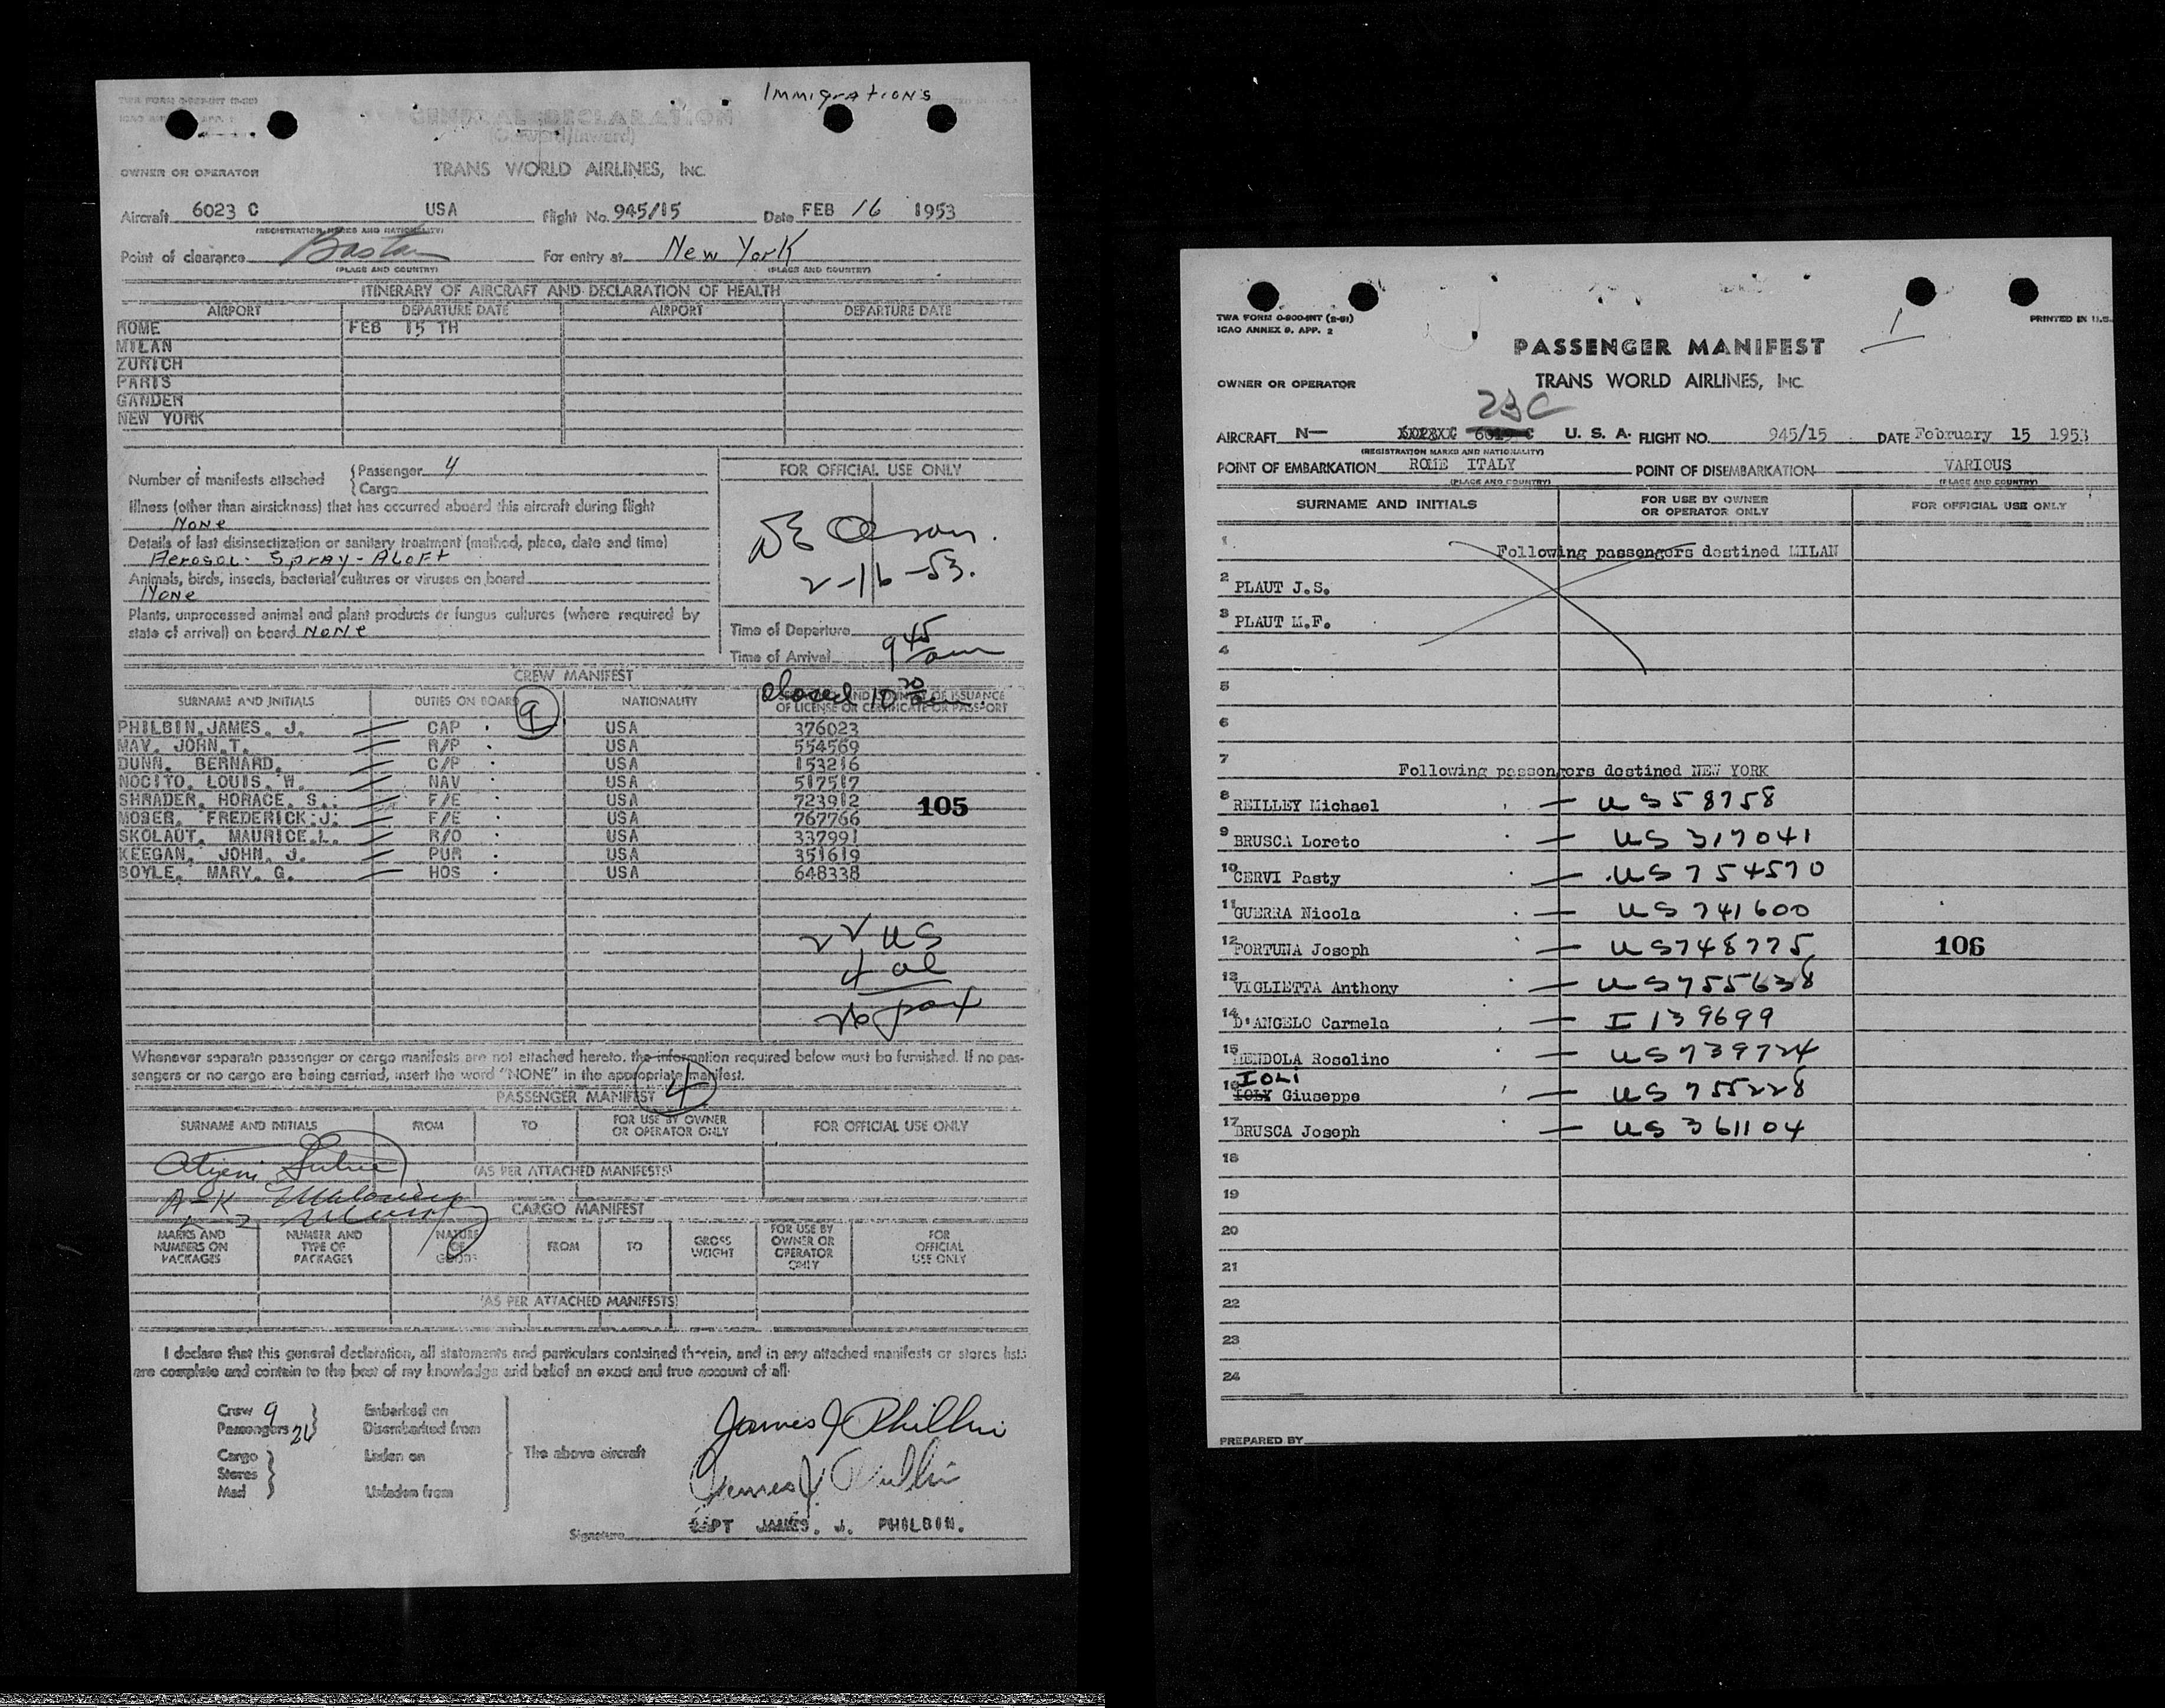 Immigrations
TWA FORM
GENERAL DECLARATION
(Outward/Inward)
OWNER OR OPERATOR TRANS WORLD AIRLINES, INC.
Aircraft 6023 C USA Flight No. 945/15 Date FEB 16 1953
(REGISTRATION MARKS AND NATIONALITY)
Point of clearance Boston For entry at New York
(PLACE AND COUNTRY) (PLACE AND COUNTRY)
ITINERARY OF AIRCRAFT AND DECLARATION OF HEALTH
AIRPORT DEPARTURE DATE AIRPORT DEPARTURE DATE
ROME FEB 15 TH
MILAN
ZURICH
PARIS
GANDER
NEW YORK
Number of manifests attached
Passenger 4
Cargo
Illness (other than airsickness) that has occurred aboard this aircraft during flight
None
Details of last disinsectization or sanitary treatment (method, place, date and time)
Aerosol - Spray - Aloft
Animals, birds, insects, bacterial cultures or viruses on board
None
Plants, unprocessed animal and plant products or fungus cultures (where required by
state of arrival) on board None
FOR OFFICIAL USE ONLY
2-16-53.
Time of Departure
Time of Arrival 9 45 am
closed 10 20
CREW MANIFEST
SURNAME AND INITIALS DUTIES ON BOARD 9 NATIONALITY
OF LICENSE OR CERTIFICATE OR PASSPORT
PHILBIN, JAMES. J. CAP USA 376023
MAY. JOHN.T. R/P USA 554569
DUNN. BERNARD. C/P USA 153216
NOCITO. LOUIS. W. NAV USA 517517
SHRADER. HORACE. S. F/E USA 723912
MOSER. FREDERICK.J. F/E USA 767766
SKOLAUT. MAURICE.L. R/O USA 337991
KEEGAN. JOHN. J. PUR USA 351619
BOYLE. MARY. G. HOS USA 648338
105
22 US
4 al
26 pax
Whenever separate passenger or cargo manifests are not attached hereto, the information required below must be furnished. If no pas-
sengers or no cargo are being carried, insert the word "NONE" in the appropriate manifest.
PASSENGER MANIFEST 4
SURNAME AND INITIALS FROM TO FOR USE BY OWNER OR OPERATOR ONLY FOR OFFICIAL USE ONLY
(AS PER ATTACHED MANIFESTS)
A-K
CARGO MANIFEST
MARKS AND NUMBERS ON PACKAGES NUMBER AND TYPE OF PACKAGES NATURE OF GOODS FROM TO GROSS WEIGHT FOR USE BY OWNER OR OPERATOR ONLY FOR OFFICIAL USE ONLY
(AS PER ATTACHED MANIFESTS)
I declare that this general declaration, all statements and particulars contained therein, and in any attached manifests or stores lists
are complete and contain to the best of my knowledge and belief an exact and true account of all
Crew 9 Embarked on
Passengers 26 Disembarked from
Cargo Laden on The above aircraft
Stores
Mail Unladen from
James J Philbin
James J Philbin
Signature CAPT JAMES. J. PHILBIN.
TWA FORM O-800-INT (2-51)
ICAO ANNEX 9. APP. 2
PRINTED IN U.S.
1
PASSENGER MANIFEST
OWNER OR OPERATOR TRANS WORLD AIRLINES, INC.
23C
AIRCRAFT N— U. S. A. FLIGHT NO. 945/15 DATE February 15 1953
(REGISTRATION MARKS AND NATIONALITY)
POINT OF EMBARKATION ROME ITALY POINT OF DISEMBARKATION VARIOUS
(PLACE AND COUNTRY) (PLACE AND COUNTRY)
SURNAME AND INITIALS FOR USE BY OWNER OR OPERATOR ONLY FOR OFFICIAL USE ONLY
1 Following passengers destined MILAN
2 PLAUT J.S.
3 PLAUT M.F.
4
5
6
7 Following passengers destined NEW YORK
8 REILLEY Michael US 58758
9 BRUSCA Loreto US 317041
10 CERVI Pasty US 754570
11 GUERRA Nicola US 741600
12 FORTUNA Joseph US 748775 106
13 VIGLIETTA Anthony US 755638
14 D'ANGELO Carmela I 139699
15 MENDOLA Rosolino US 739724
IOLI
16 IOLY Giuseppe US 755228
17 BRUSCA Joseph US 361104
18
19
20
21
22
23
24
PREPARED BY